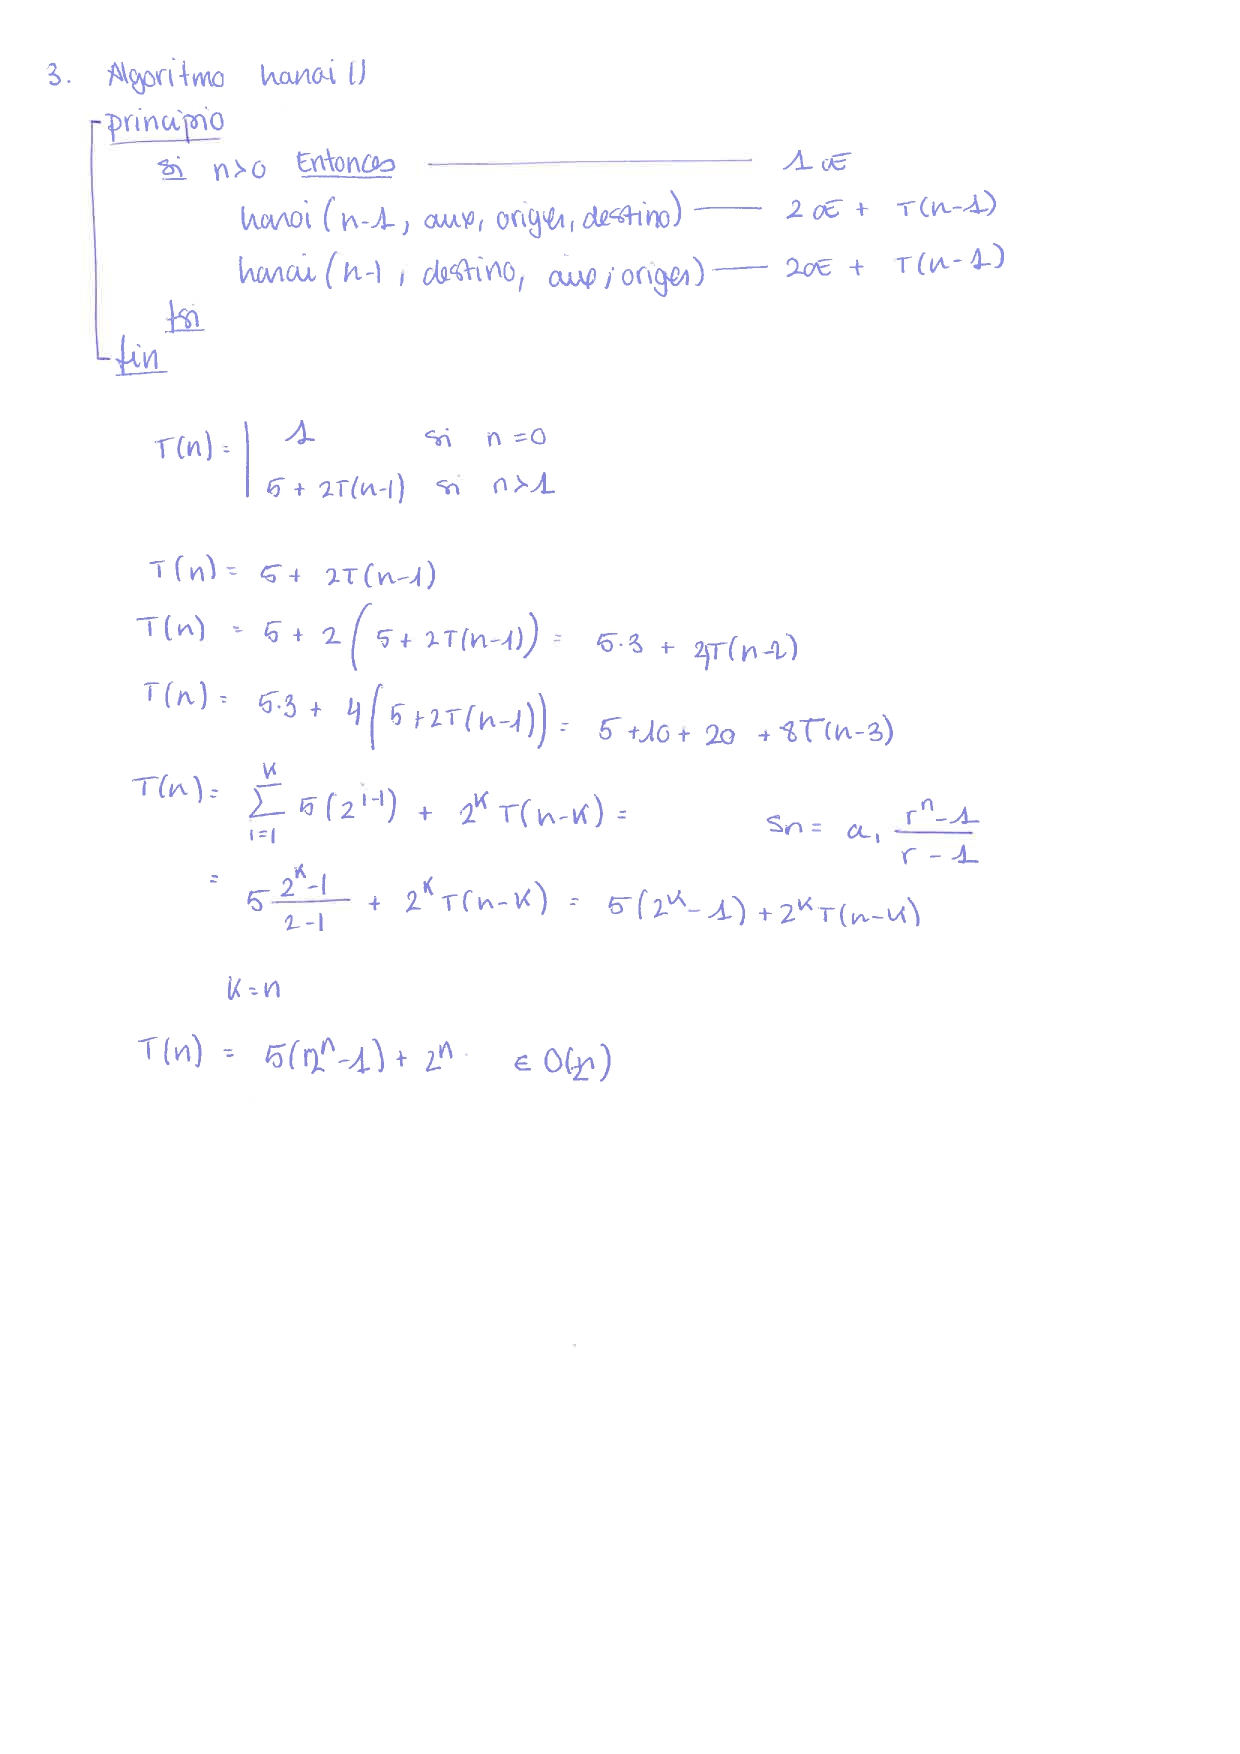 3. Algoritmo hanoi ()
principio
si n>0 Entonces 1 OE
hanoi (n-1, aux, origen, destino) 2 OE + T(n-1)
hanoi (n-1, destino, aux, origen) 2 OE + T(n-1)
fsi
fin
T(n) = | 1 si n=0
5 + 2T(n-1) si n>1
T(n) = 5 + 2T(n-1)
T(n) = 5 + 2(5 + 2T(n-1)) = 5·3 + 4T(n-2)
T(n) = 5·3 + 4(5+2T(n-1)) = 5+10+20 + 8T(n-3)
T(n) = ∑_{i=1}^{K} 5(2^{i-1}) + 2^K T(n-K) = Sn = a₁ (r^n - 1)/(r - 1)
= 5 (2^K - 1)/(2-1) + 2^K T(n-K) = 5(2^K - 1) + 2^K T(n-K)
K=n
T(n) = 5(2^n - 1) + 2^n ∈ O(2^n)